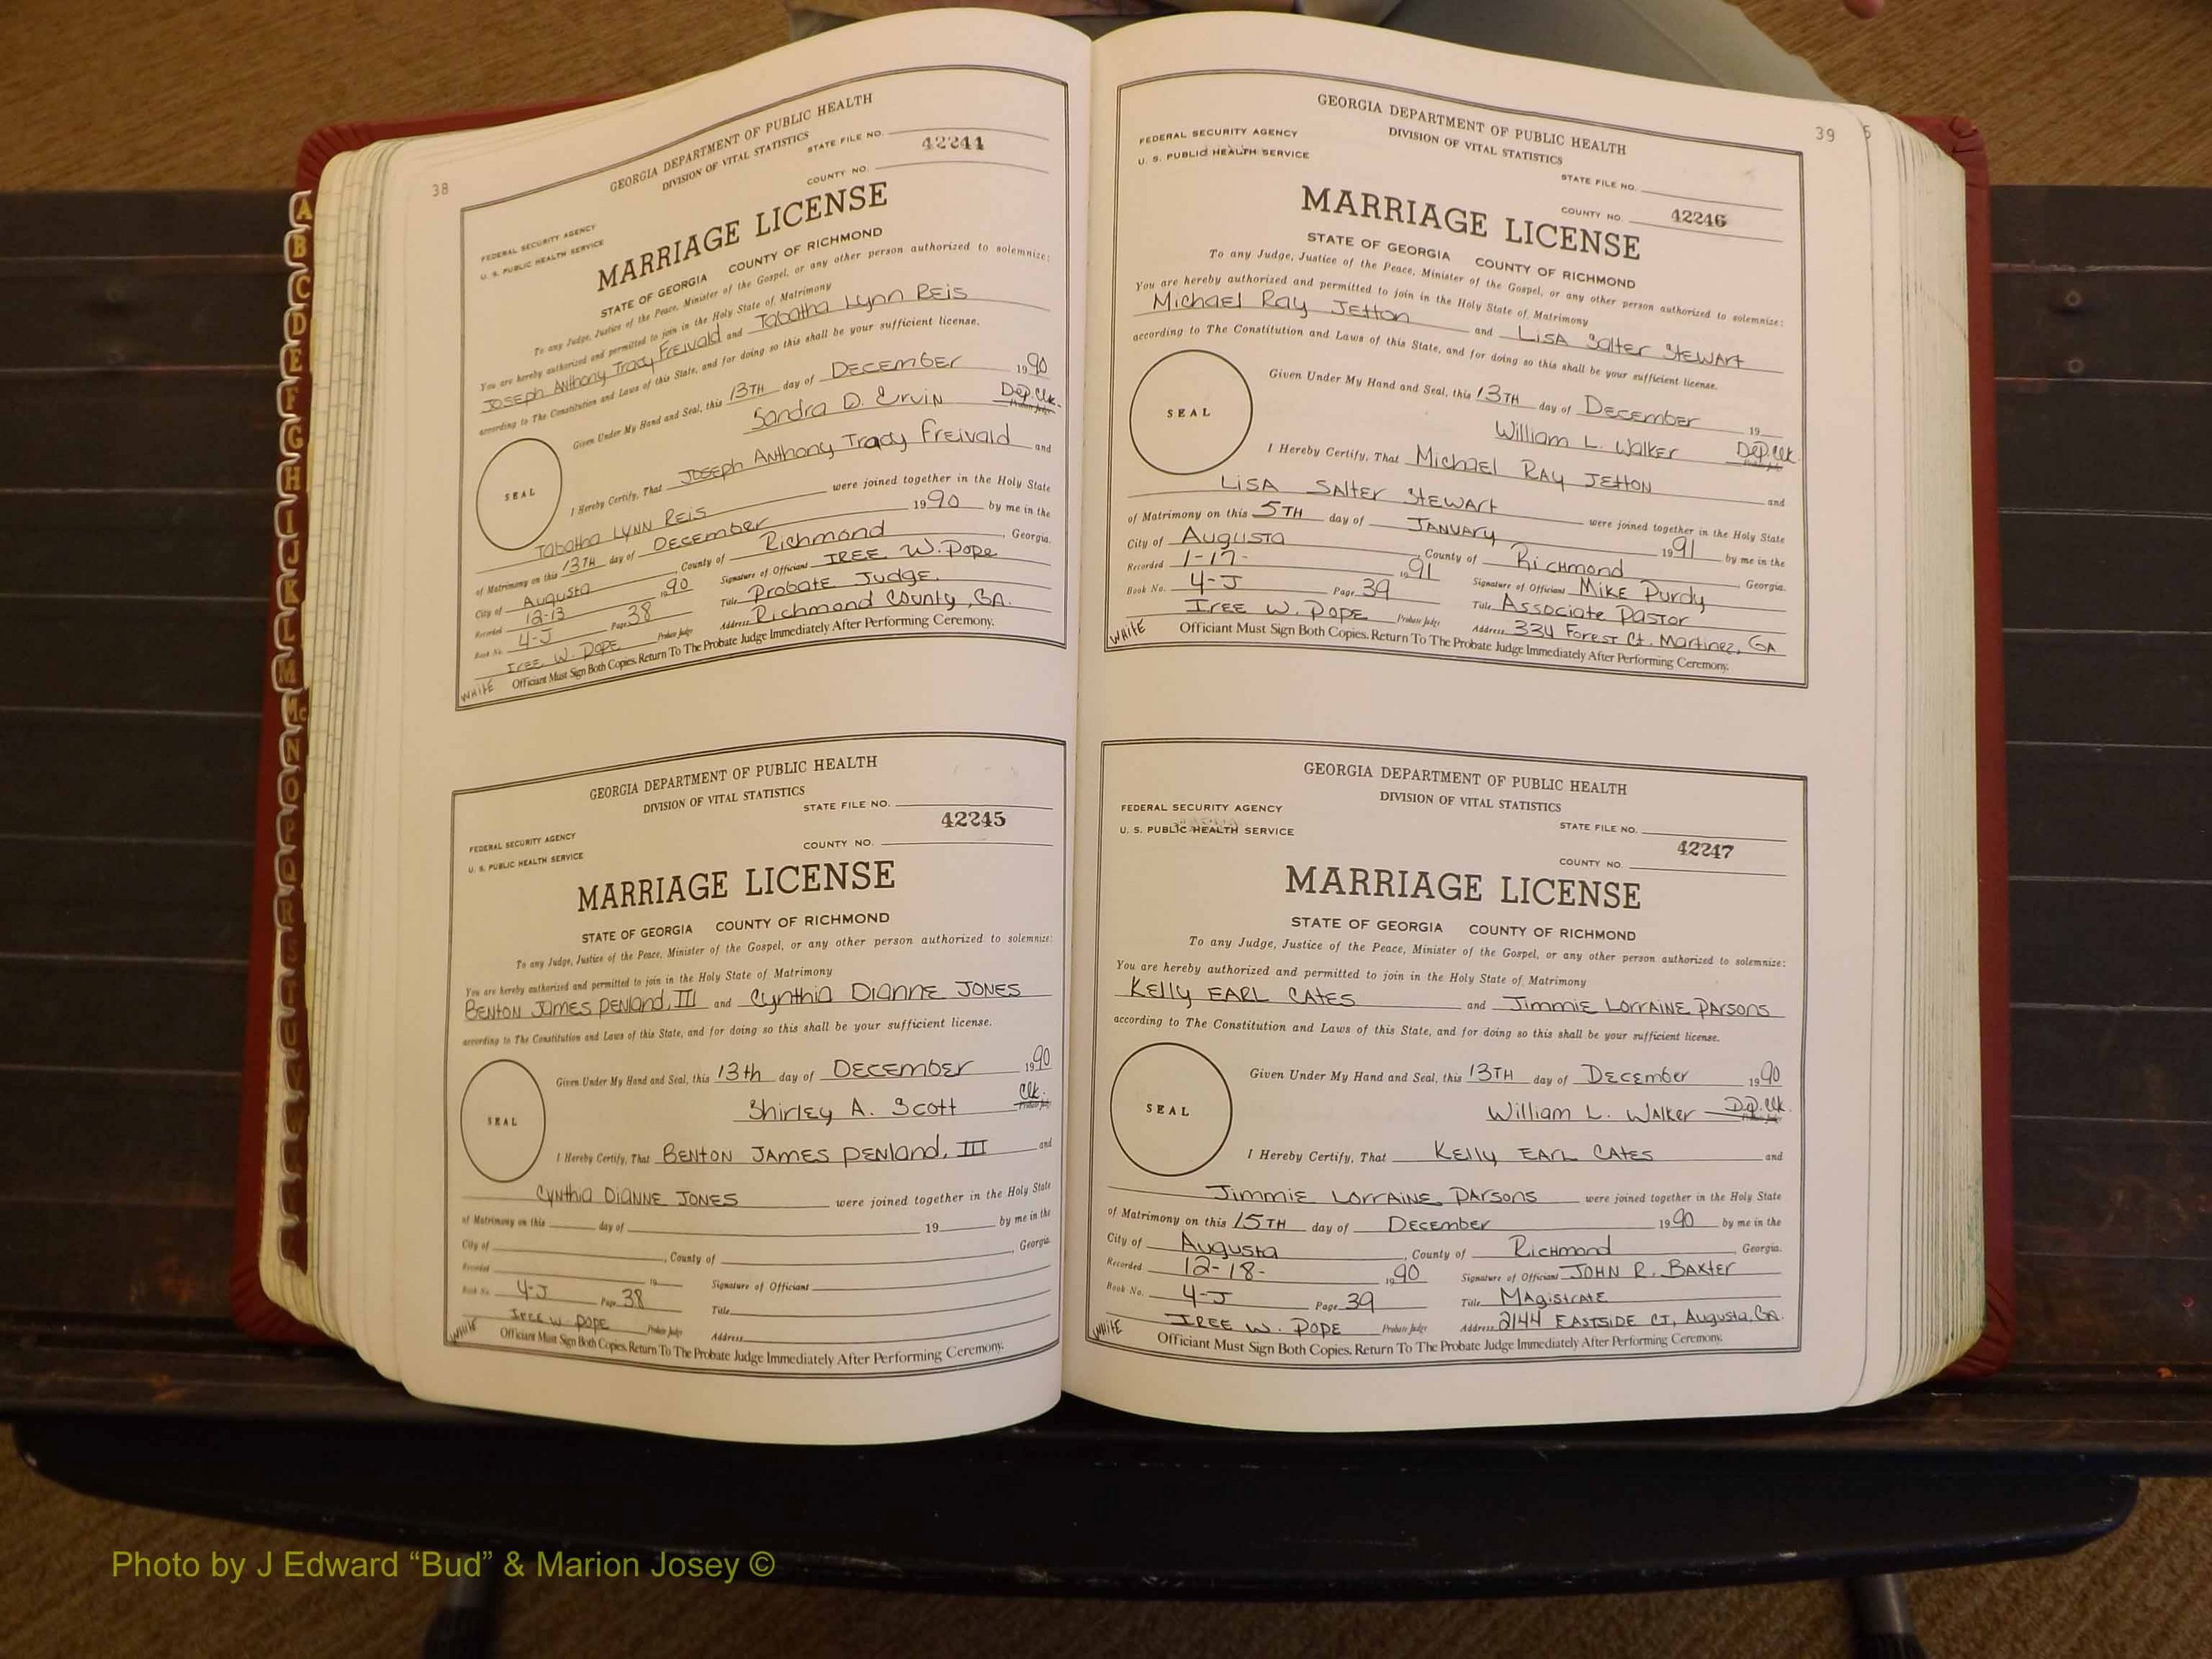 38
GEORGIA DEPARTMENT OF PUBLIC HEALTH
DIVISION OF VITAL STATISTICS
STATE FILE NO.
42244
COUNTY NO.
FEDERAL SECURITY AGENCY
U. S. PUBLIC HEALTH SERVICE
MARRIAGE LICENSE
STATE OF GEORGIA COUNTY OF RICHMOND
To any Judge, Justice of the Peace, Minister of the Gospel, or any other person authorized to solemnize:
You are hereby authorized and permitted to join in the Holy State of Matrimony
Joseph Anthony Tracy Freivald and Tabatha Lynn Reis
according to The Constitution and Laws of this State, and for doing so this shall be your sufficient license.
Given Under My Hand and Seal, this 13TH day of December 1990
Sandra D. Ervin Dep. Clk. Probate Judge
SEAL
I Hereby Certify, That Joseph Anthony Tracy Freivald and
Tabatha Lynn Reis were joined together in the Holy State
of Matrimony on this 13TH day of December 1990 by me in the
City of Augusta, County of Richmond, Georgia.
Recorded 12-13 1990 Signature of Officiant Iree W. Pope
Book No. 4-J Page 38 Title Probate Judge.
Iree W. Pope Probate Judge Address Richmond County, GA.
WHITE Officiant Must Sign Both Copies. Return To The Probate Judge Immediately After Performing Ceremony.
GEORGIA DEPARTMENT OF PUBLIC HEALTH
DIVISION OF VITAL STATISTICS
STATE FILE NO.
42245
COUNTY NO.
FEDERAL SECURITY AGENCY
U. S. PUBLIC HEALTH SERVICE
MARRIAGE LICENSE
STATE OF GEORGIA COUNTY OF RICHMOND
To any Judge, Justice of the Peace, Minister of the Gospel, or any other person authorized to solemnize:
You are hereby authorized and permitted to join in the Holy State of Matrimony
Benton James Penland, III and Cynthia Dianne Jones
according to The Constitution and Laws of this State, and for doing so this shall be your sufficient license.
Given Under My Hand and Seal, this 13th day of December 1990
Shirley A. Scott Clk. Probate Judge
SEAL
I Hereby Certify, That Benton James Penland, III and
Cynthia Dianne Jones were joined together in the Holy State
of Matrimony on this day of 19 by me in the
City of , County of , Georgia.
Recorded 19 Signature of Officiant
Book No. 4-J Page 38 Title
Iree W Pope Probate Judge Address
WHITE Officiant Must Sign Both Copies. Return To The Probate Judge Immediately After Performing Ceremony.
39 5
GEORGIA DEPARTMENT OF PUBLIC HEALTH
DIVISION OF VITAL STATISTICS
FEDERAL SECURITY AGENCY
U. S. PUBLIC HEALTH SERVICE
STATE FILE NO.
COUNTY NO. 42246
MARRIAGE LICENSE
STATE OF GEORGIA COUNTY OF RICHMOND
To any Judge, Justice of the Peace, Minister of the Gospel, or any other person authorized to solemnize:
You are hereby authorized and permitted to join in the Holy State of Matrimony
Michael Ray Jetton and Lisa Salter Stewart
according to The Constitution and Laws of this State, and for doing so this shall be your sufficient license.
Given Under My Hand and Seal, this 13TH day of December 19
William L. Walker Dep. Clk. Probate Judge
SEAL
I Hereby Certify, That Michael Ray Jetton and
Lisa Salter Stewart were joined together in the Holy State
of Matrimony on this 5TH day of January 1991 by me in the
City of Augusta, County of Richmond Georgia.
Recorded 1-17- 1991 Signature of Officiant Mike Purdy
Book No. 4-J Page 39 Title Associate Pastor
Iree W. Pope Probate Judge Address 334 Forest Ct. Martinez, GA
WHITE Officiant Must Sign Both Copies. Return To The Probate Judge Immediately After Performing Ceremony.
GEORGIA DEPARTMENT OF PUBLIC HEALTH
DIVISION OF VITAL STATISTICS
FEDERAL SECURITY AGENCY
U. S. PUBLIC HEALTH SERVICE
STATE FILE NO.
42247
COUNTY NO.
MARRIAGE LICENSE
STATE OF GEORGIA COUNTY OF RICHMOND
To any Judge, Justice of the Peace, Minister of the Gospel, or any other person authorized to solemnize:
You are hereby authorized and permitted to join in the Holy State of Matrimony
Kelly Earl Cates and Jimmie Lorraine Parsons
according to The Constitution and Laws of this State, and for doing so this shall be your sufficient license.
Given Under My Hand and Seal, this 13TH day of December 1990
William L. Walker Dep. Clk. Probate Judge
SEAL
I Hereby Certify, That Kelly Earl Cates and
Jimmie Lorraine Parsons were joined together in the Holy State
of Matrimony on this 15TH day of December 1990 by me in the
City of Augusta, County of Richmond Georgia.
Recorded 12-18- 1990 Signature of Officiant John R. Baxter
Book No. 4-J Page 39 Title Magistrate
Iree W. Pope Probate Judge Address 2144 Eastside Ct, Augusta, Ga.
WHITE Officiant Must Sign Both Copies. Return To The Probate Judge Immediately After Performing Ceremony.
A
B
C
D
E
F
G
H
I
J
K
L
M
Mc
N
O
P
Q
R
Photo by J Edward “Bud” & Marion Josey ©